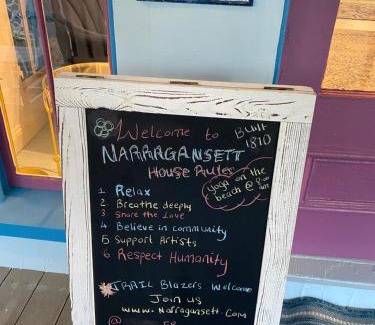 Welcome to
Built
1870
NARRAGANSETT
House Rules
yoga on the
beach @ 9:00
am
1 Relax
2 Breathe deeply
3 Share the Love
4 Believe in community
5 Support Artists
6 Respect Humanity
TRAIL Blazers Welcome
Join us
www.Narragansett.Com
@ FB